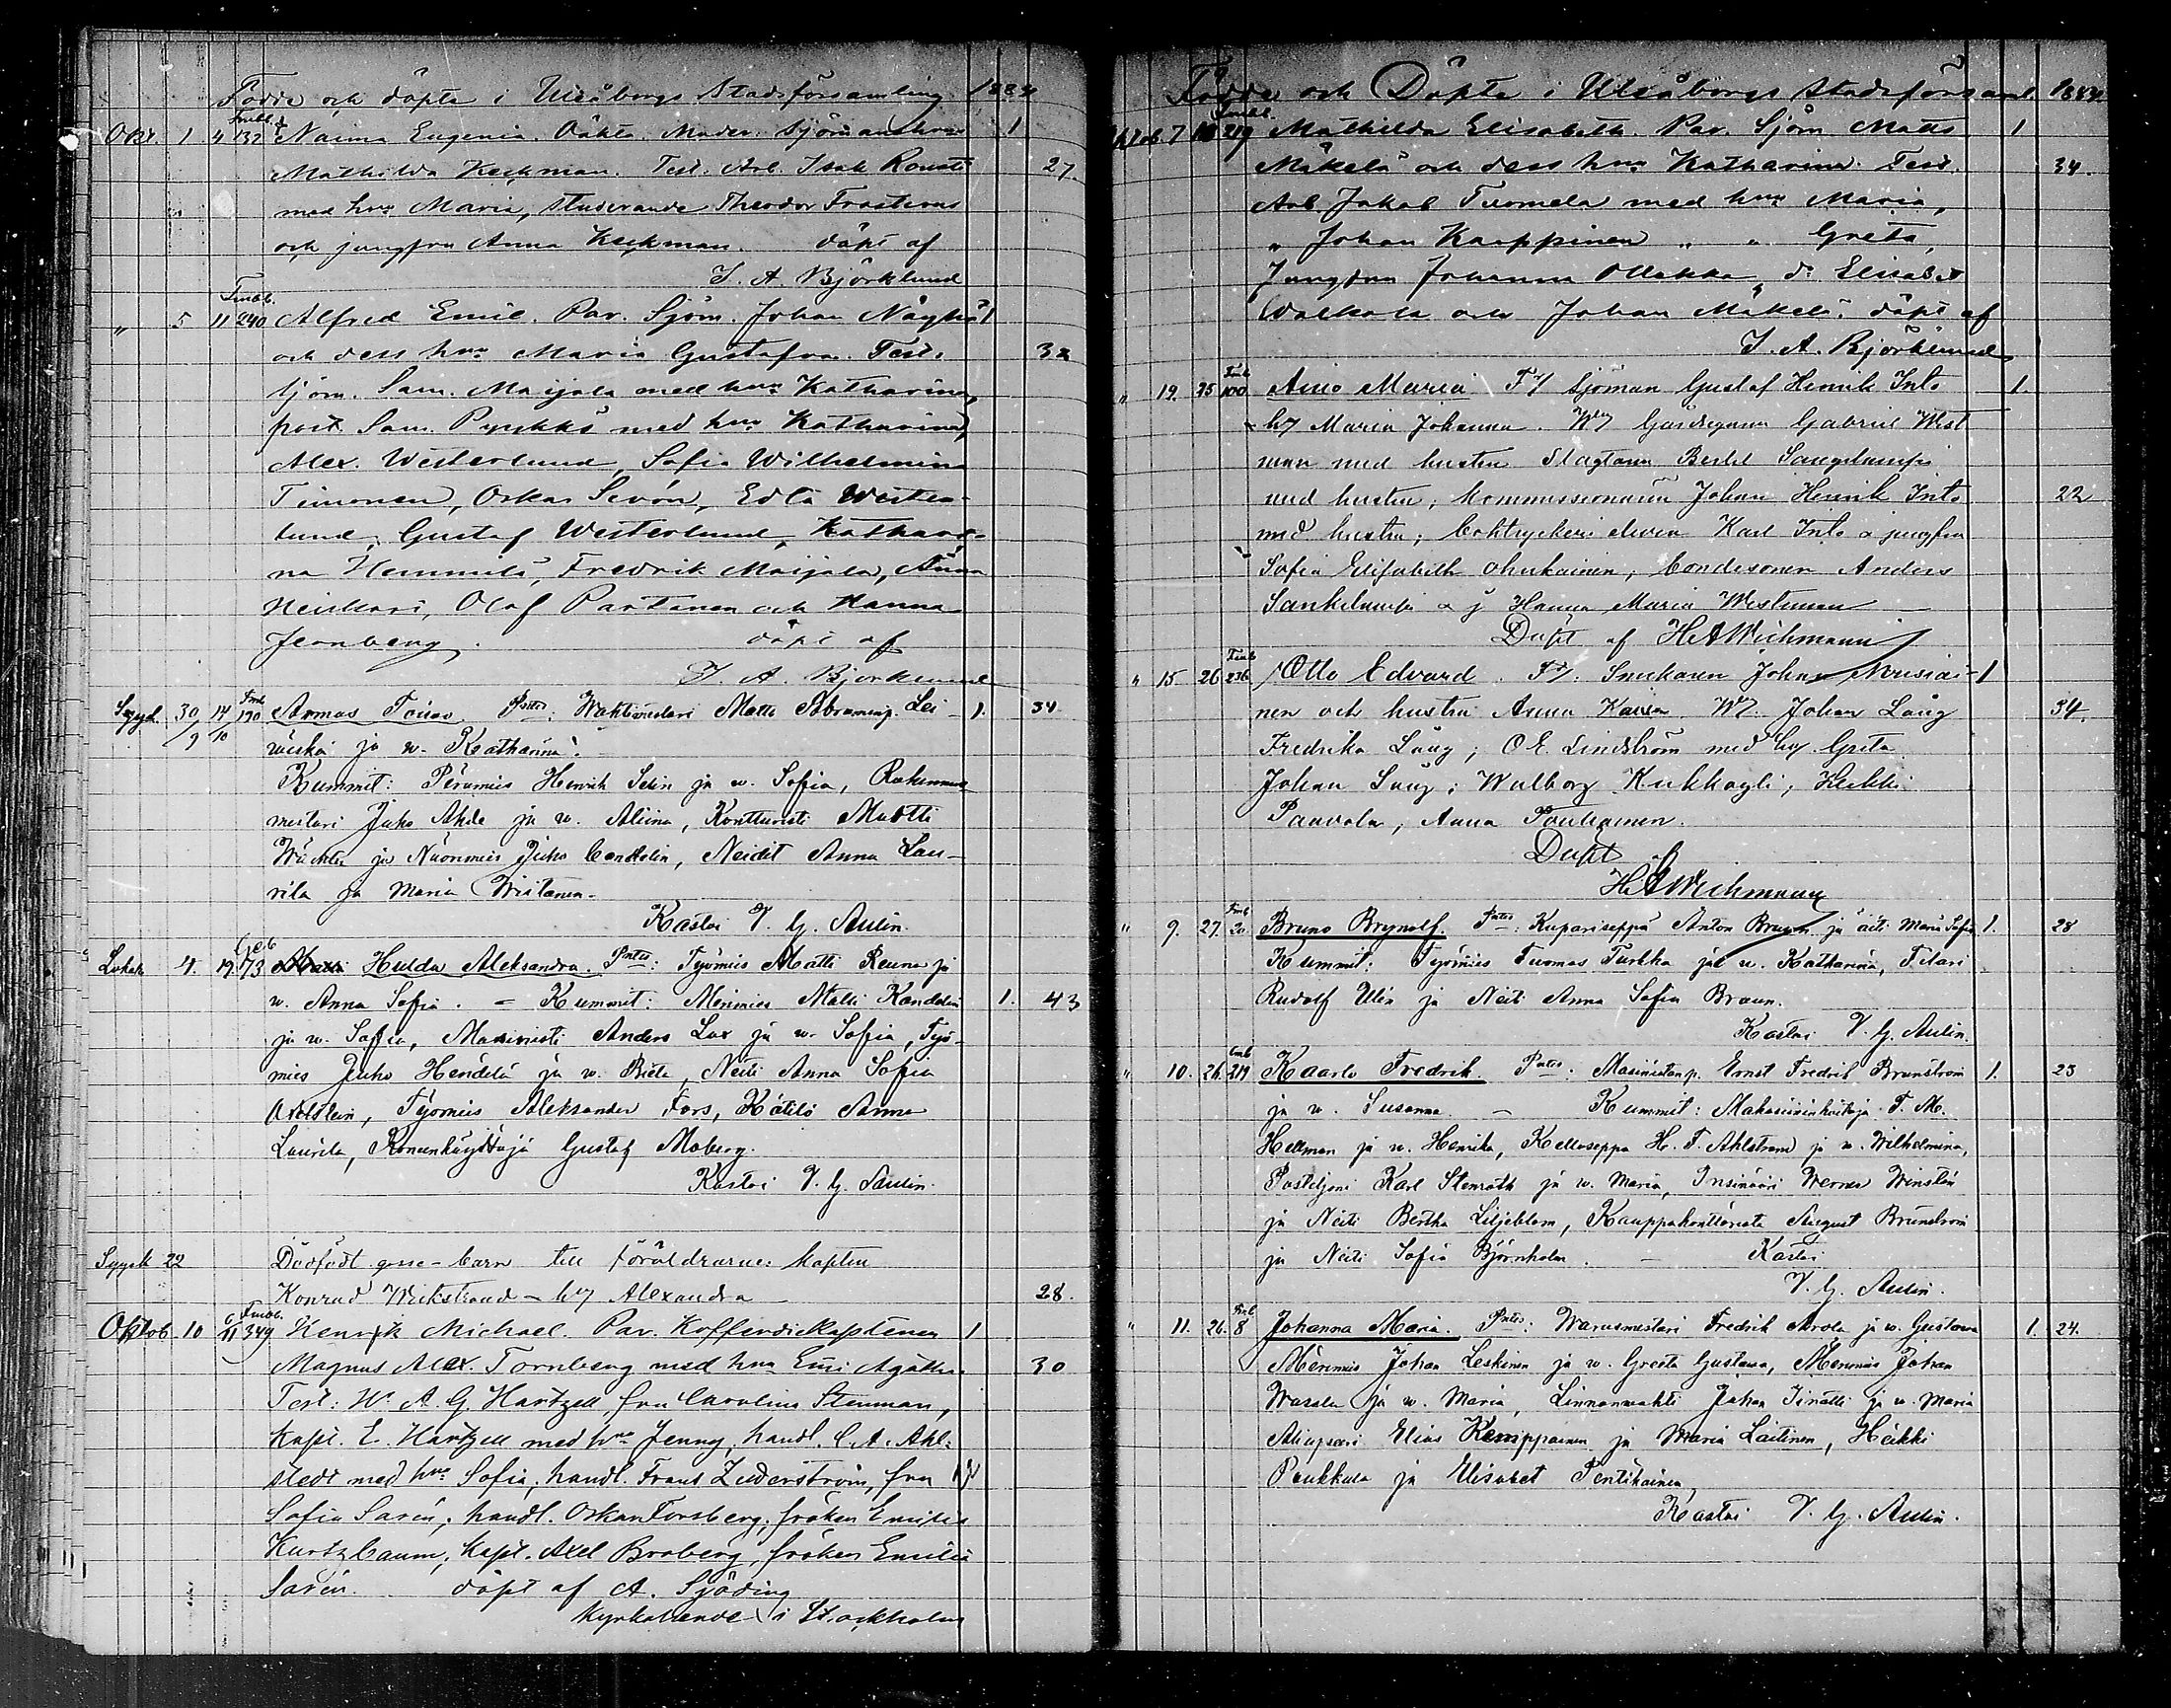 Födde och döpte i Uleåborgs Stadsförsamling 1884
Okt. 1 4 132 Naima Eugenia. Oäkta. Moder: Sjömanshru 1
Mathilda Keckman. Test. Arb. Isak 27.
med hru Maria, studerande Theodor
och jungfru Anna Keckman. döpt af
I. A. Björklund
" 5 11 240 Alfred Emil. Par. Sjöm. Johan 1
och dess hru Maria Gustafva. Test. 32
Sjöm. Sam. Maijala med hru Katharina,
Sam. med hru Katharina,
Alex. Westerlund, Sofia Wilhelmina
Timonen, Oskar Sevón, Edla Wester-
lund, Gustaf Westerlund, Kathari-
na Hemmilä, Fredrik Maijala, Anna
Heikkari, Olaf Partanen och Hanna
döpt af
I. A. Björklund
Syysk. 30/9 14/10 190 Armas Toivo. Pntes: Wahtimestari Matts Lei- 1. 34
wiskä ja w. Katharina.
Kummit: Perämies Henrik Selin ja w. Sofia, Rakennus
mestari Juho Ahde ja w. Aliina, Kontturisti Matti
ja Nuorimies Juho Neidit Anna Lau-
rila ja Maria
Kastoi V. G. Aulin.
Lokak. 4. 19. 173 Hulda Aleksandra. Pntes: Työmies Matti ja
w. Anna Sofia. - Kummit: Merimies Matti 1. 43
ja w. Sofia, Masinisti Anders Lax ja w. Sofia, Työ-
mies Juho ja w. Neiti Anna Sofia
Työmies Aleksander Fors, Kätilö Anna
Laurila, Koneenkäyttäjä Gustaf Moberg.
Kastoi V. G. Aulin.
Syysk 22 Dödfödt gosse-barn till föräldrarne: kapten
Konrad Wickstrand - h/ Alexandra 28.
Oktob. 10 11 349 Henrik Michael. Par. Kofferdikaptenen 1
Magnus Alex. Tornberg med hru Emi Agatha. 30
Test: W. A. G. Hartzell, fru Carolina Stenman,
Kapt. E. Hartzell med hru Jenny, handl. C. A. Ahl-
stedt med hru Sofia, handl. Frans Zuderström, fru
Sofia Sarén, handl. Oskar Forsberg, fröken Emilia
Kurtzbaum, Kapt. Axel Broberg, fröken Emilia
Sarén. döpt af A. Sjöding
Kyrkoherde i Stockholm
Födde och Döpte i Uleåborgs stadsförsaml. 1884
Oktob 7 219 Mathilda Elisabeth. Par. Sjöm Matts 1
Mäkelä och dess hru Katharina. Test. 34.
Arb Jakob Tuomela med hru Maria,
" Johan Karppinen " " Greta,
Jungfrun Johanna Ollakka, do Elisabet
Walkola och Johan Mäkelä. döpt af
I. A. Björklund
" 19. 25 100 Aino Maria F/ Sjöman Gustaf Henrik Into 1.
h/ Maria Johanna. W/ Gårdsegaren Gabriel West
man med hustru Slagtaren Bertel
med hustru; Kommissionären Johan Henrik Into 22
med hustru; boktryckeri eleven Karl Into o jungfru
Sofia Elisabeth Ohukainen; Anders
o j Hanna Maria Westman
Döpt af H A Wichmann
" 15 26 236 Otto Edvard. F/. Snickaren Johan Nousiai- 1
nen och hustru Anna Kaisa. W/. Johan Lång 34.
Fredrika Lång; O E. Lindström med h/ Greta
Johan Lång; Walborg Heikki
Paavola; Anna
Döpt af
H. A Wichmann
" 9. 27. 20. Bruno Brynolf. Pntes: Kupariseppä Anton Bruun ja äiti Maria Sofia 1. 28
Kummit: Työmies Tuomas Turkka ja w. Katharina,
Rudolf Ulin ja Neiti Anna Sofia
Kastoi V. G. Aulin.
" 10. 26. 219 Kaarlo Fredrik. Pntes: Masinistanp. Ernst Fredrik Brunström 1. 23
ja w. Susanna. - Kummit: F. M.
Hellman ja w. Henrika, Kelloseppä H. F. Ahlström ja w. Wilhelmina,
Postiljoni Karl Stenroth ja w. Maria, Insinööri Werner Winstén
ja Neiti Bertha Liljeblom, August Brunström
ja Neiti Sofia Björnholm. - Kastoi
V. G. Aulin.
" 11. 26. 8 Johanna Maria. Pntes: Fredrik Arola ja w. Gustava 1. 24.
Merimies Johan Leskinen ja w. Greeta Gustava, Merimies Johan
ja w. Maria, Linnanwahti Juhan ja w. Maria
Elias Kemppainen ja Maria Laitinen, Heikki
Paukkula ja Elisabet Pentikäinen,
Kastoi V. G. Aulin.